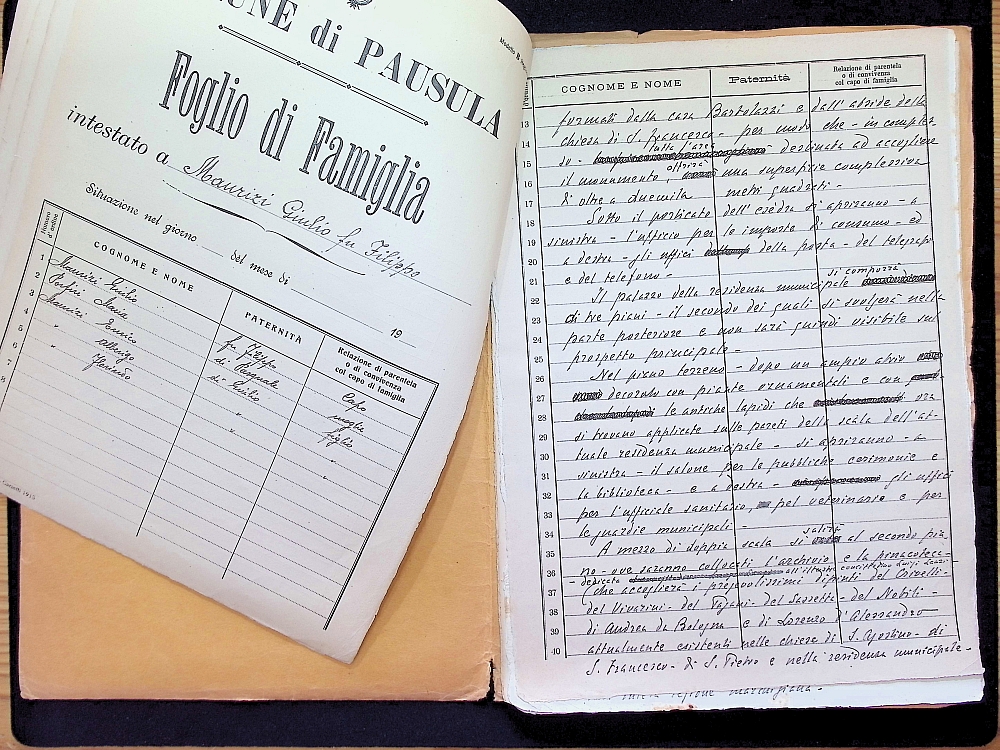 UNE di PAUSULA
Foglio di Famiglia
intestato a Maurizi Giulio fu Filippo
Situazione nel giorno del mese di 19
Numero d'ordine
COGNOME E NOME
PATERNITÀ
Relazione di parentela
o di convivenza
col capo di famiglia
1 Maurizi Giulio fu Filippo Capo
2 Maria di Pasquale moglie
3 Maurizi Enrico di Giulio figlio
4 " " "
5
6
7
8
COGNOME E NOME
Paternità
Relazione di parentela
o di convivenza
col capo di famiglia
13 formati dalla casa Bartolazzi e dall'abside della
14 chiesa di S. Francesco - per modo che - in comples
tutta l'area
15 so - destinata ad accogliere
offrirà
16 il monumento, una superficie complessiva
17 di oltre a duemila metri quadrati. -
18 Sotto il porticato dell'esedra si apriranno - a
19 sinistra - l'ufficio per le imposte di consumo - ed
20 a destra - gli uffici della posta - del telegrafo
21 e del telefono. -
si comporrà
22 Il palazzo della residenza municipale
23 di tre piani - il secondo dei quali si svolgerà nella
24 parte posteriore e non sarà quindi visibile sul
25 prospetto principale. -
26 Nel piano terreno - dopo un ampio atrio
27 decorato con piante ornamentali e con
28 le antiche lapidi che ora
29 si trovano applicate sulle pareti della scala dell'at-
30 tuale residenza municipale - si apriranno - a
31 sinistra - il salone per le pubbliche cerimonie e
32 la biblioteca - e a destra - gli uffici
33 per l'ufficiale sanitario, pel veterinario e per
34 le guardie municipali. -
salirà
35 A mezzo di doppia scala si al secondo pia
36 no - ove saranno collocati l'archivio e la pinacoteca -
- dedicata all'illustre concittadino Luigi Lanzi -
37 (che accoglierà i pregevolissimi dipinti del Crivelli -
38 dei Vivarini - del Pagani - del Sassetta - del Nobili -
39 di Andrea da Bologna e di Lorenzo d'Alessandro
40 attualmente esistenti nelle chiese di S. Agostino - di
S. Francesco - di S. Pietro e nella residenza municipale -
regione marchigiana. -